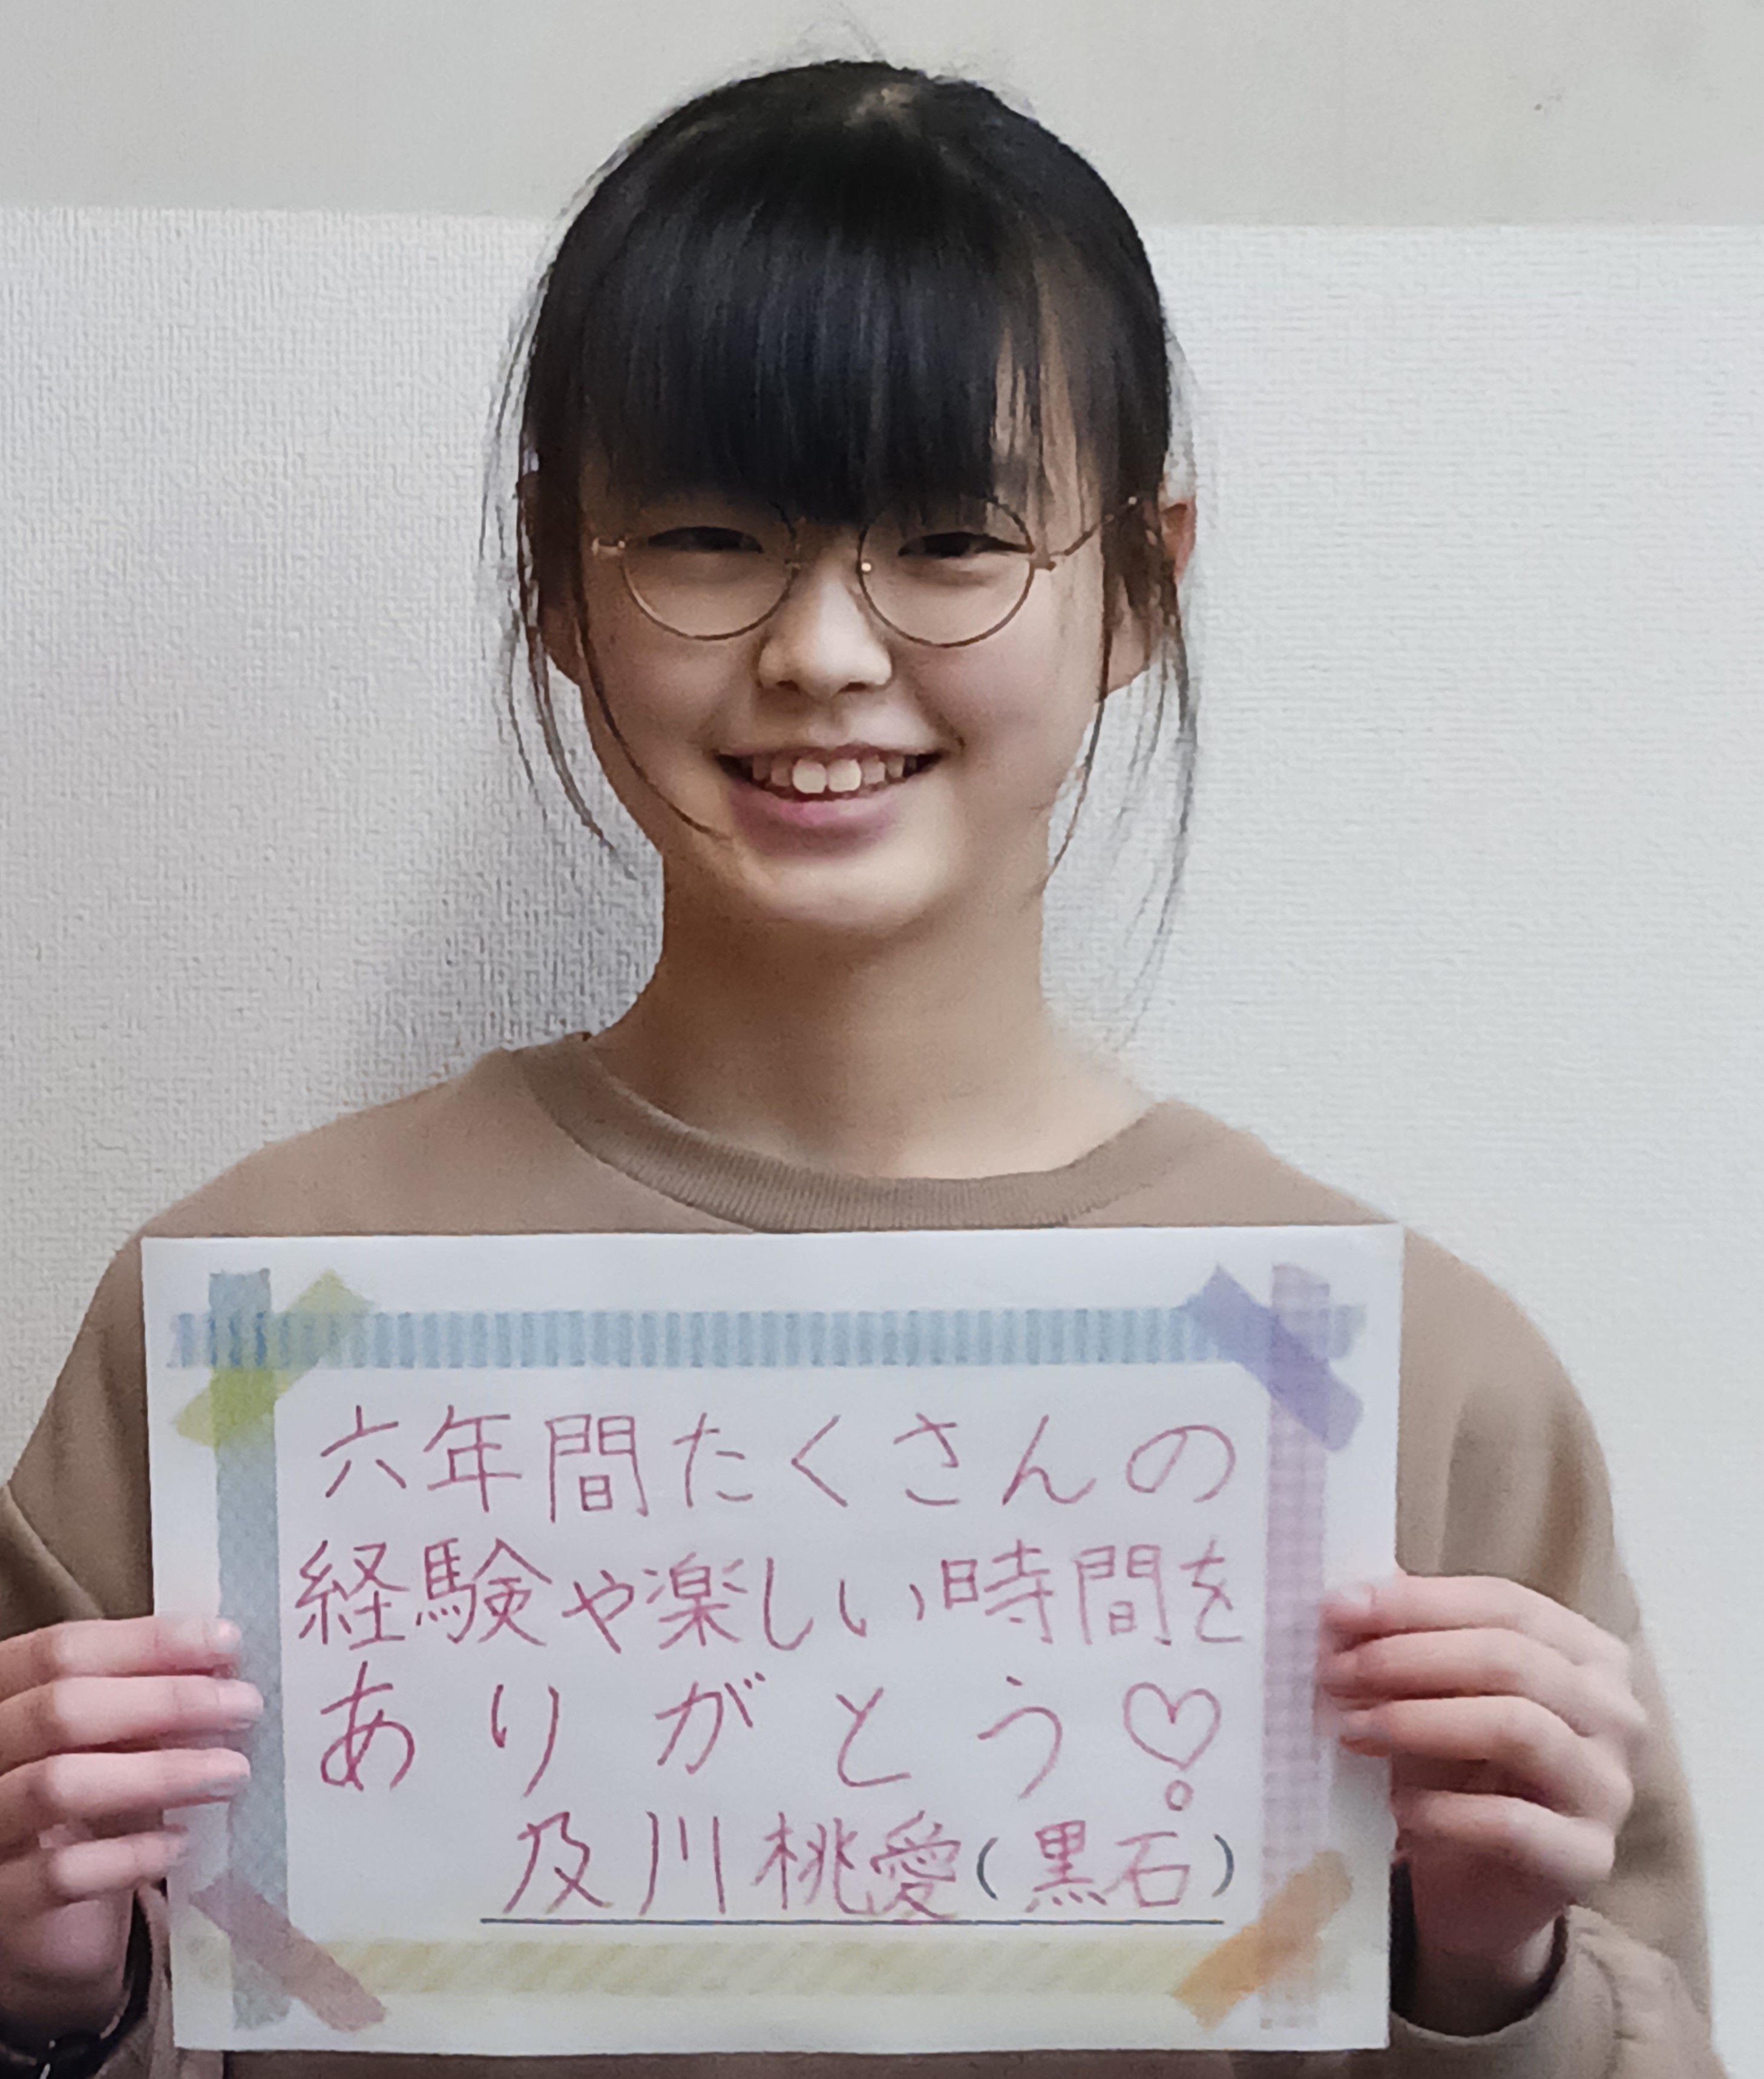 六年間たくさんの
経験や楽しい時間を
ありがとう♡。
及川桃愛(黒石)